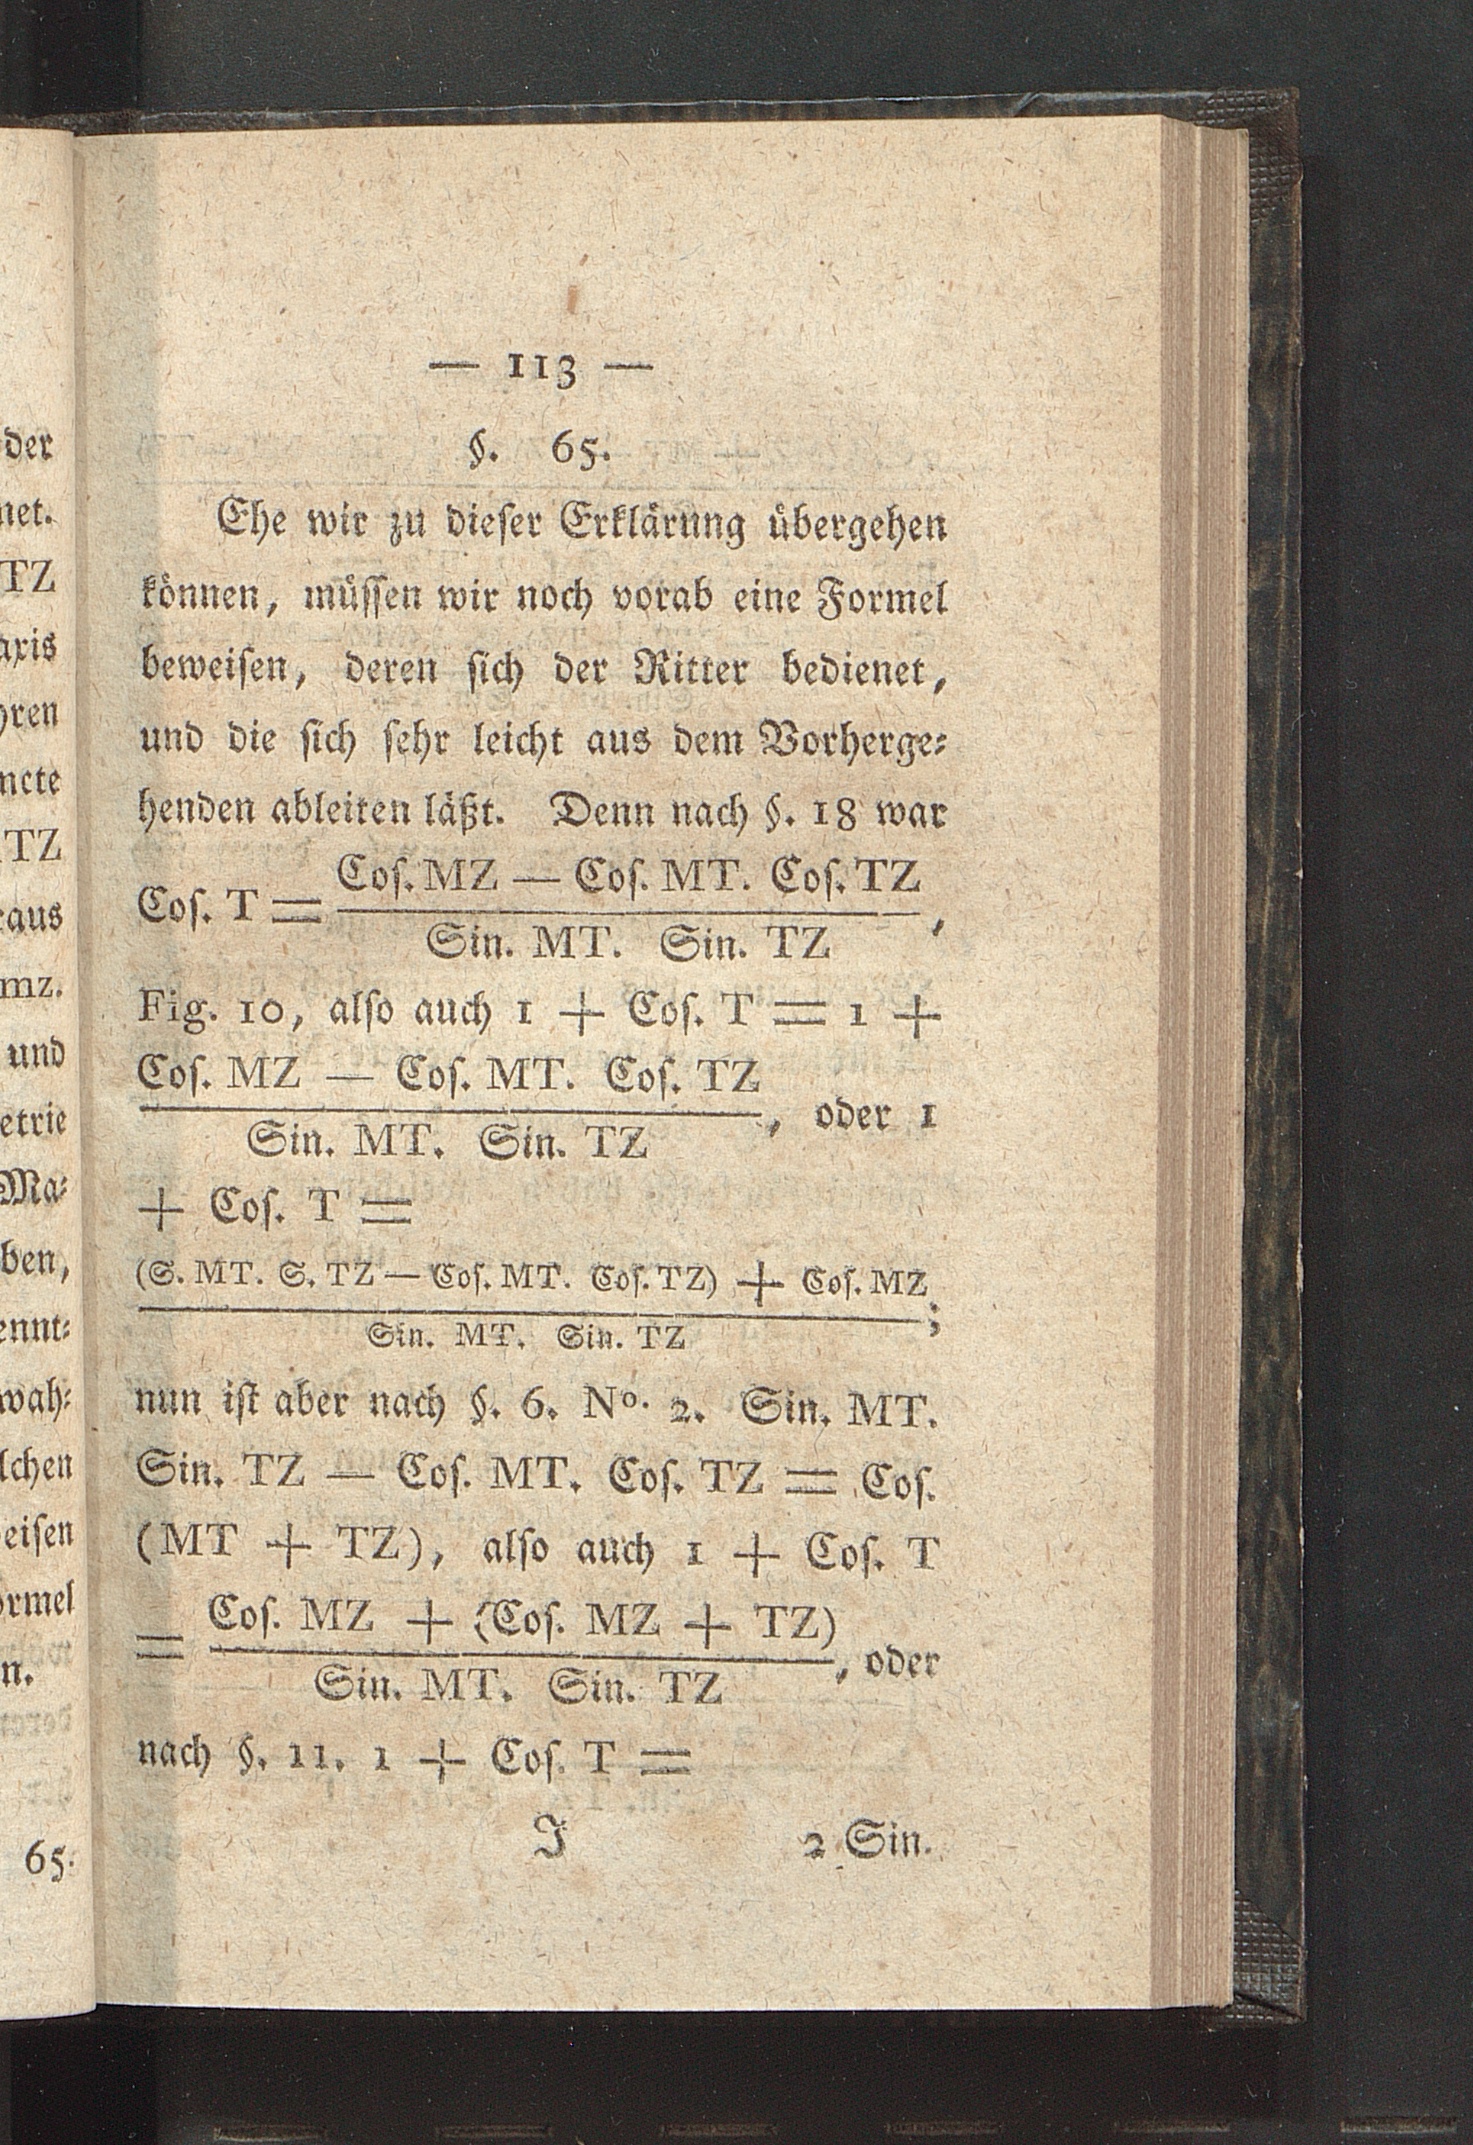 der
net.
TZ
axis
hren
ncte
TZ
raus
mz.
und
etrie
Ma⸗
ben,
ennt⸗
wah⸗
lchen
eisen
ormel
n.
65.
— 113 —
§. 65.
Ehe wir zu dieſer Erklärung übergehen
können, müſſen wir noch vorab eine Formel
beweiſen, deren ſich der Ritter bedienet,
und die ſich ſehr leicht aus dem Vorherge⸗
henden ableiten läßt. Denn nach §. 18 war
Coſ. MZ — Coſ. MT. Coſ. TZ
Coſ. T = ,
Sin. MT. Sin. TZ
Fig. 10, alſo auch 1 + Coſ. T = 1 +
Coſ. MZ — Coſ. MT. Coſ. TZ
, oder 1
Sin. MT. Sin. TZ
+ Coſ. T =
(S. MT. S. TZ — Coſ. MT. Coſ. TZ) + Coſ. MZ
;
Sin. MT. Sin. TZ
nun iſt aber nach §. 6. No. 2. Sin. MT.
Sin. TZ — Coſ. MT. Coſ. TZ = Coſ.
(MT + TZ), alſo auch 1 + Coſ. T
Coſ. MZ + (Coſ. MZ + TZ)
= , oder
Sin. MT. Sin. TZ
nach §. 11. 1 + Coſ. T =
J 2 Sin.